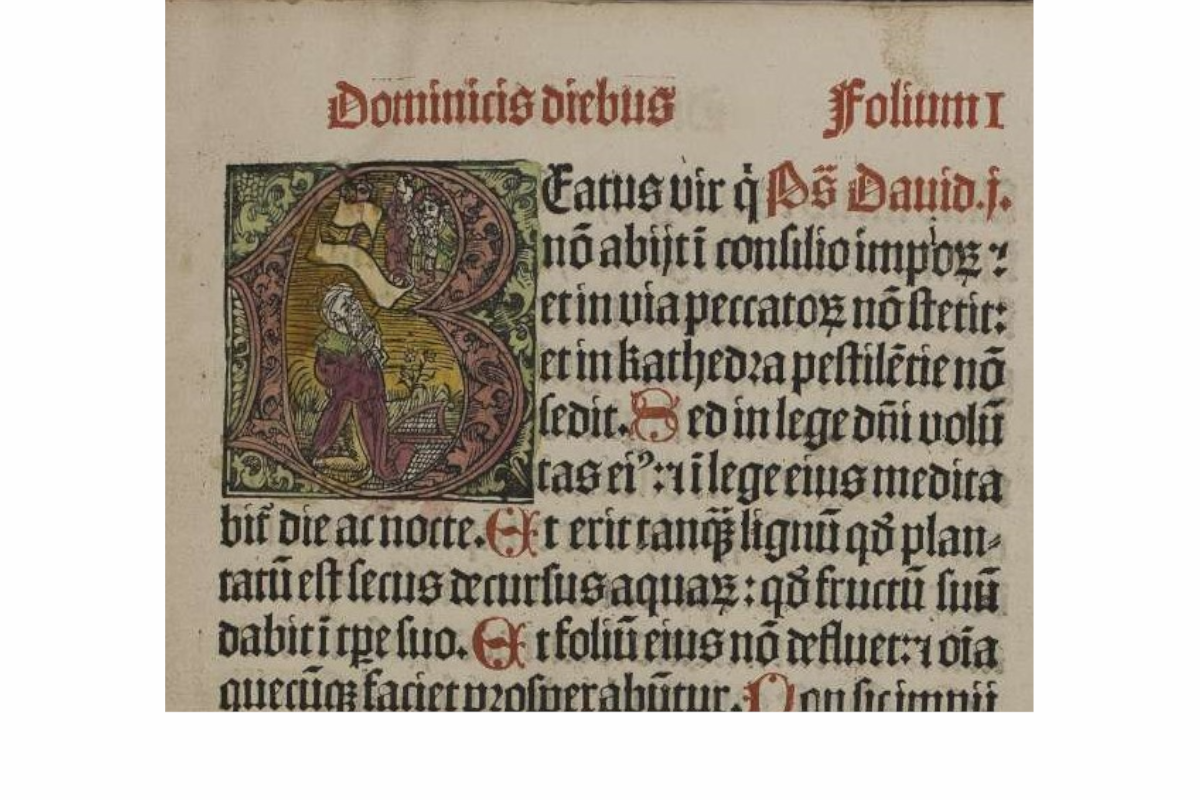 Dominicis diebus Folium I
BEatus vir q̇ Ps̄ Dauid.j.
nō abijt ī consilio impioꝝ ⁊
et in via peccatoꝝ nō stetit:
et in kathedra pestilētie nō
sedit. Sed in lege dn̄i volū
tas eiꝰ: ⁊ ī lege eius medita
bit̄ die ac nocte. Et erit tanqȝ̄ lignū qđ plan-
tatū est secus decursus aquaꝝ: qđ fructū suū
dabit ī tꝑe suo. Et foliū eius nō defluet: ⁊ oīa
quecūqȝ faciet prosperabūtur. Non sic impii